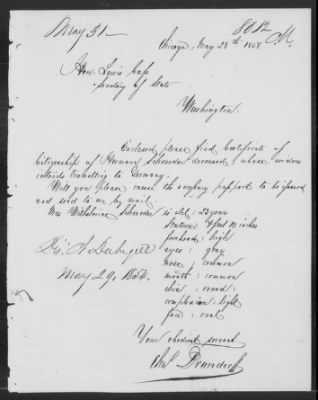 May 31
8082
Chicago, May 28th 1858
Hon. Lewis Cass
Secretary of State
Washington.
Enclosed please find Certificate of
Citizenship of Herman Schroeder deceased, whose widow
intends travelling to Germany.
Will you please cause the necessary passport to be issued
and send to me by mail.
Mrs Wilhelmine Schroeder is old: 23 years
Stature: 4 feet 10 inches
forehead: high
eyes: gray
nose: common
mouth: common
chin: round
complexion: light
face: oval
May 29, 1858.
Your obedient servant